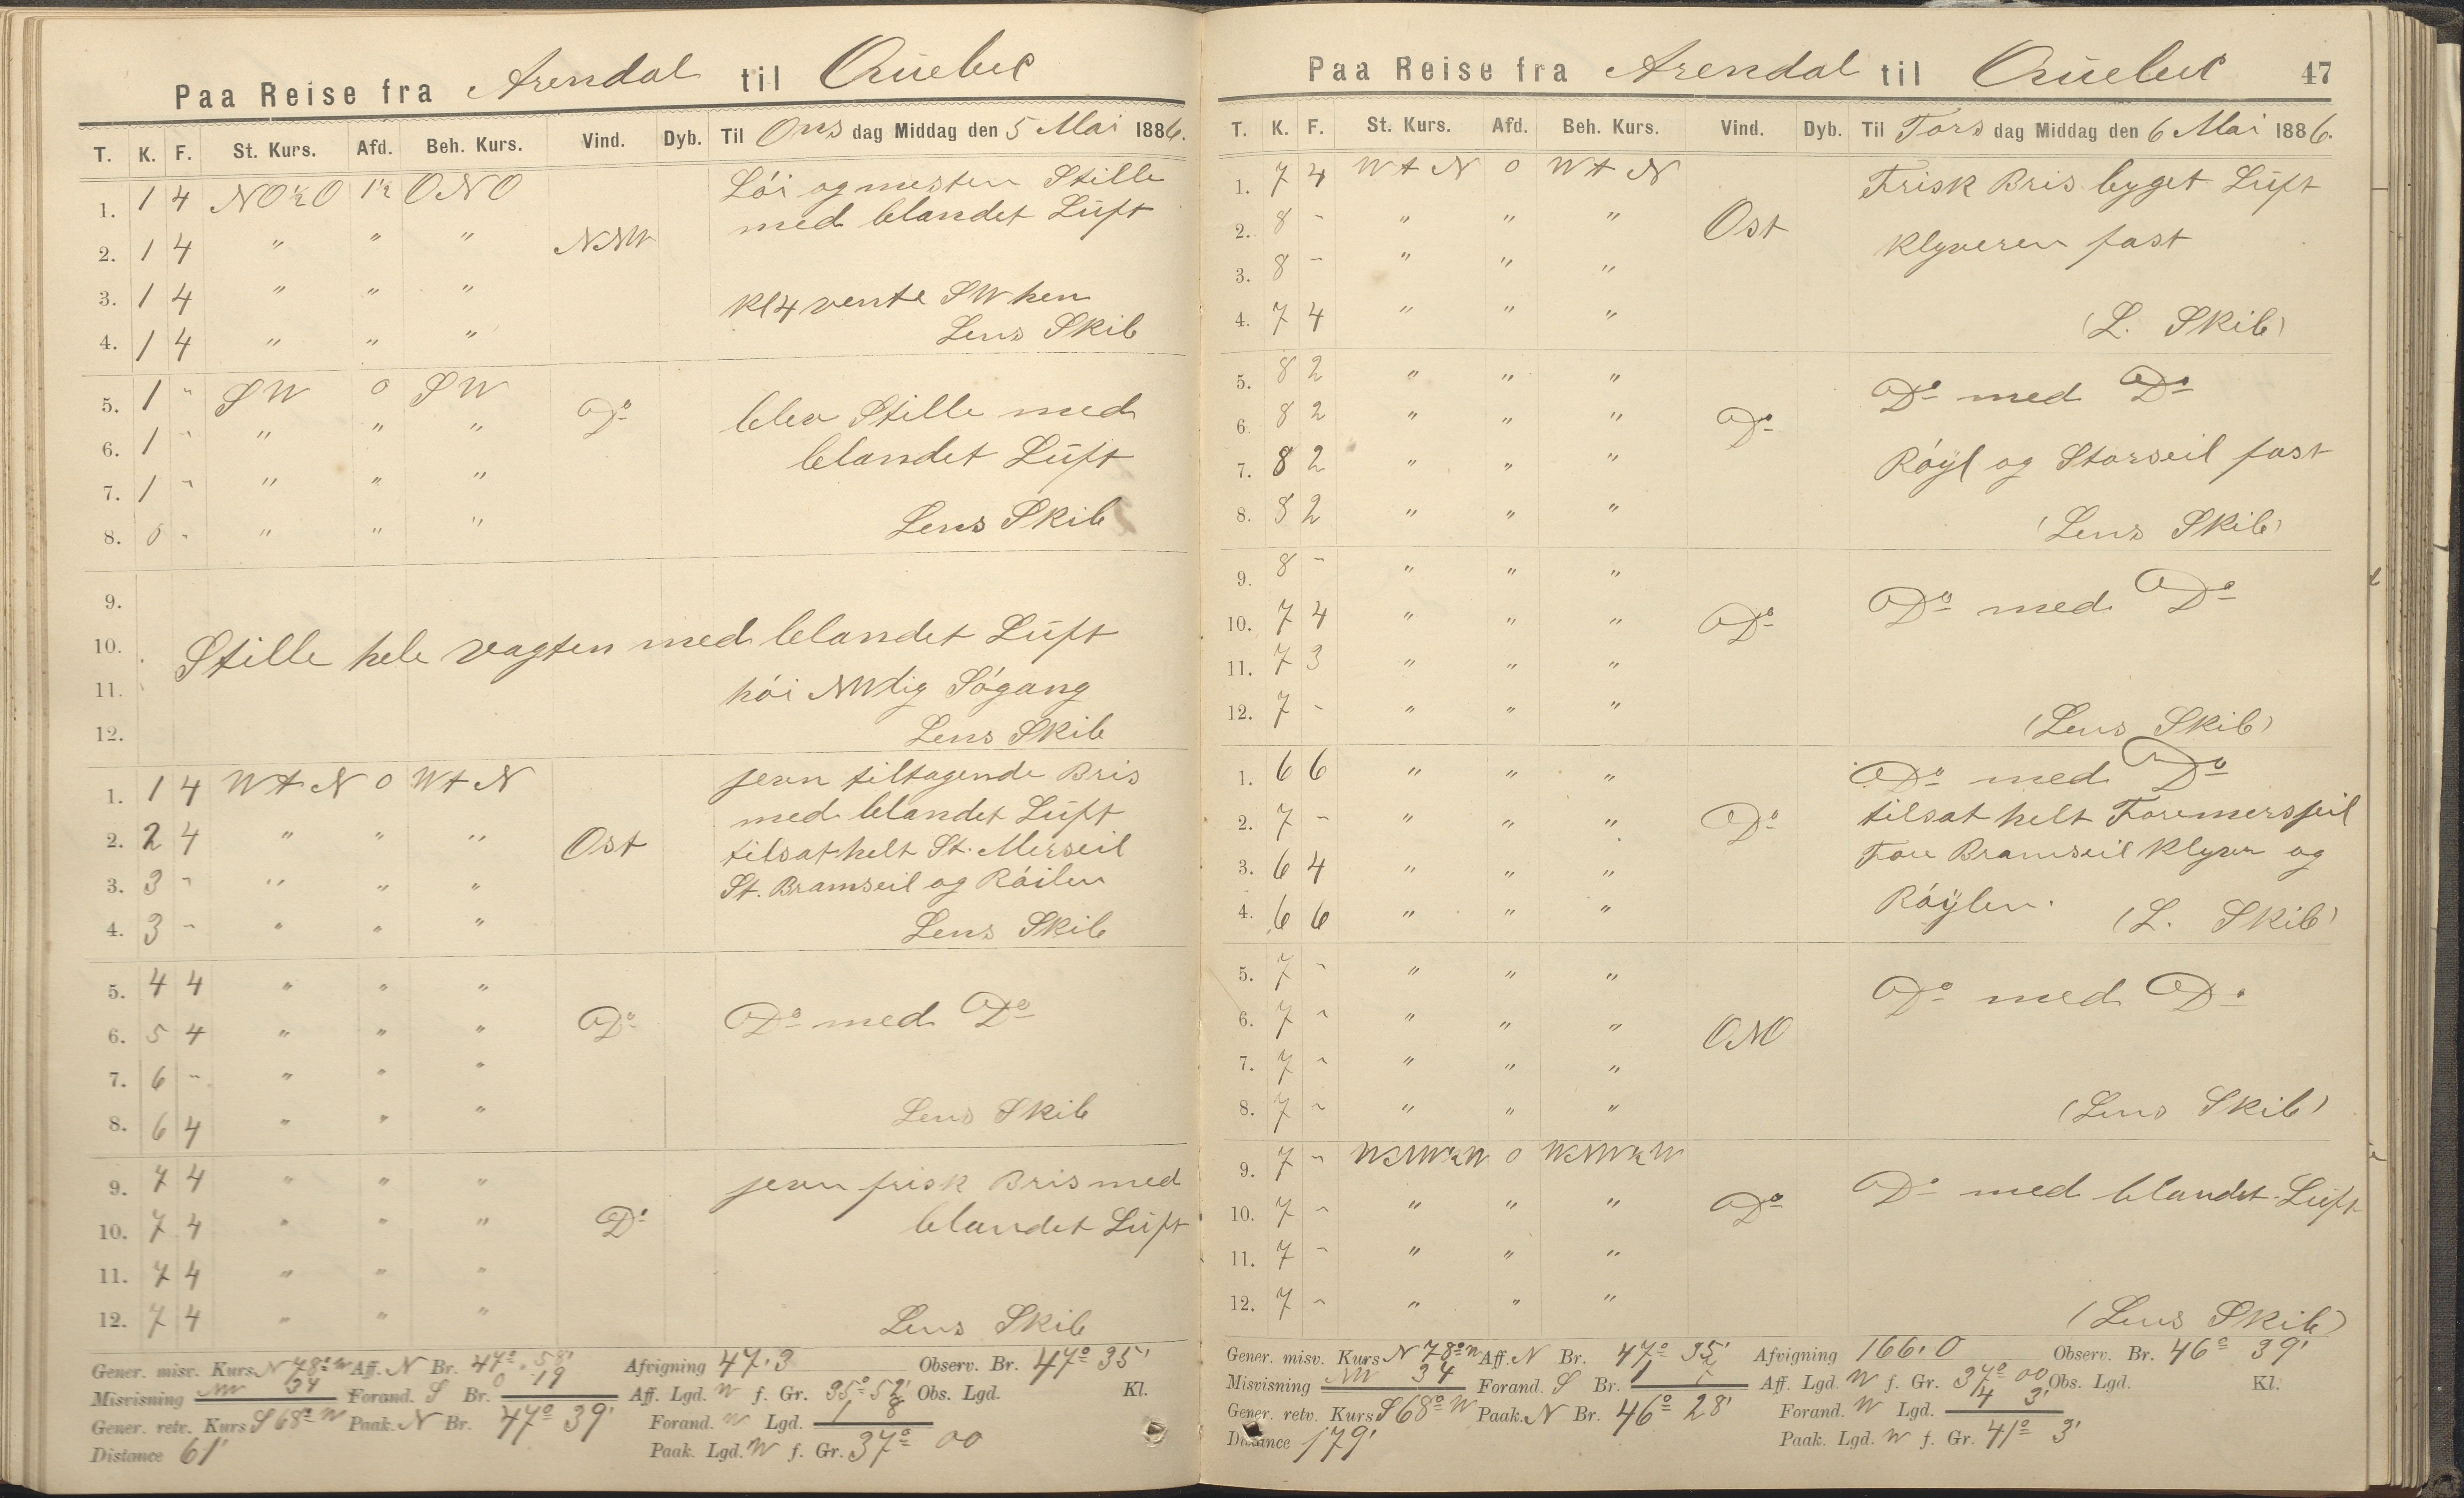 Paa Reise fra Arendal til Quebec
T. K. F. St. Kurs. Afd. Beh. Kurs. Vind. Dyb. Til Onsdag Middag den 5 Mai 1886.
1. 1 4 NO½O 1½ ONO Löi og nesten Stille
2. 1 4 " " " NNW med blandet Luft
3. 1 4 " " " Kl 4 vente SW hen
4. 1 4 " " " Lens Skib
5. 1 - SW 0 SW Do blev Stille med
6. 1 - " " " blandet Luft
7. 1 - " " "
8. 0 - " " " Lens Skib
9.
10. Stille hele vagten med blandet Luft
11. höi NWlig Sögang
12. Lens Skib
1. 1 4 W t N 0 W t N jevn tiltagende Bris
med blandet Luft
2. 2 4 " " " Ost tilsat helt St. Merseil
3. 3 - " " " St. Bramseil og Röilen
4. 3 - " " " Lens Skib
5. 4 4 " " "
6. 5 4 " " " Do Do med Do
7. 6 - " " "
8. 6 4 " " " Lens Skib
9. 7 4 " " " jevn frisk Bris med
10. 7 4 " " " Do blandet Luft
11. 7 4 " " "
12. 7 4 " " " Lens Skib
Gener. misv. Kurs N 78° W Aff. N Br. 47° 58' Afvigning 47,3 Observ. Br. 47° 35'
Misvisning NW 34 Forand. S Br. 0 19 Aff. Lgd. W f. Gr. 35° 52' Obs. Lgd. Kl.
Gener. retv. Kurs S 68° W Paak. N Br. 47° 39' Forand. W Lgd. 1 8
Distance 61' Paak. Lgd. W f. Gr. 37° 00
Paa Reise fra Arendal til Quebec 47
T. K. F. St. Kurs. Afd. Beh. Kurs. Vind. Dyb. Til Torsdag Middag den 6 Mai 1886.
1. 7 4 W t N 0 W t N Frisk Bris byget Luft
2. 8 - " " " Ost Klyveren fast
3. 8 - " " "
4. 7 4 " " " (L. Skib)
5. 8 2 " " " Do med Do
6. 8 2 " " " Do
7. 8 2 " " " Röyl og Storseil fast
8. 8 2 " " " (Lens Skib)
9. 8 - " " "
10. 7 4 " " " Do Do med Do
11. 7 3 " " "
12. 7 - " " " (Lens Skib)
1. 6 6 " " " Do med Do
2. 7 - " " " Do tilsat helt Foremersseil
3. 6 4 " " " Fore Bramseil Klyver og
4. 6 6 " " " Röylen. (L. Skib)
5. 7 - " " " Do med Do
6. 7 - " " " ONO
7. 7 - " " "
8. 7 - " " " (Lens Skib)
9. 7 - WNW½W 0 WNW½W
10. 7 - " " " Do Do med blandet Luft
11. 7 - " " "
12. 7 - " " " (Lens Skib)
Gener. misv. Kurs N 78° W Aff. N Br. 47° 35' Afvigning 166,0 Observ. Br. 46° 39'
Misvisning NW 34 Forand. S Br. 1 Aff. Lgd. W f. Gr. 37° 00 Obs. Lgd. Kl.
Gener. retv. Kurs S 68° W Paak. N Br. 46° 28' Forand. W Lgd. 4 3'
Distance 179' Paak. Lgd. W f. Gr. 41° 3'